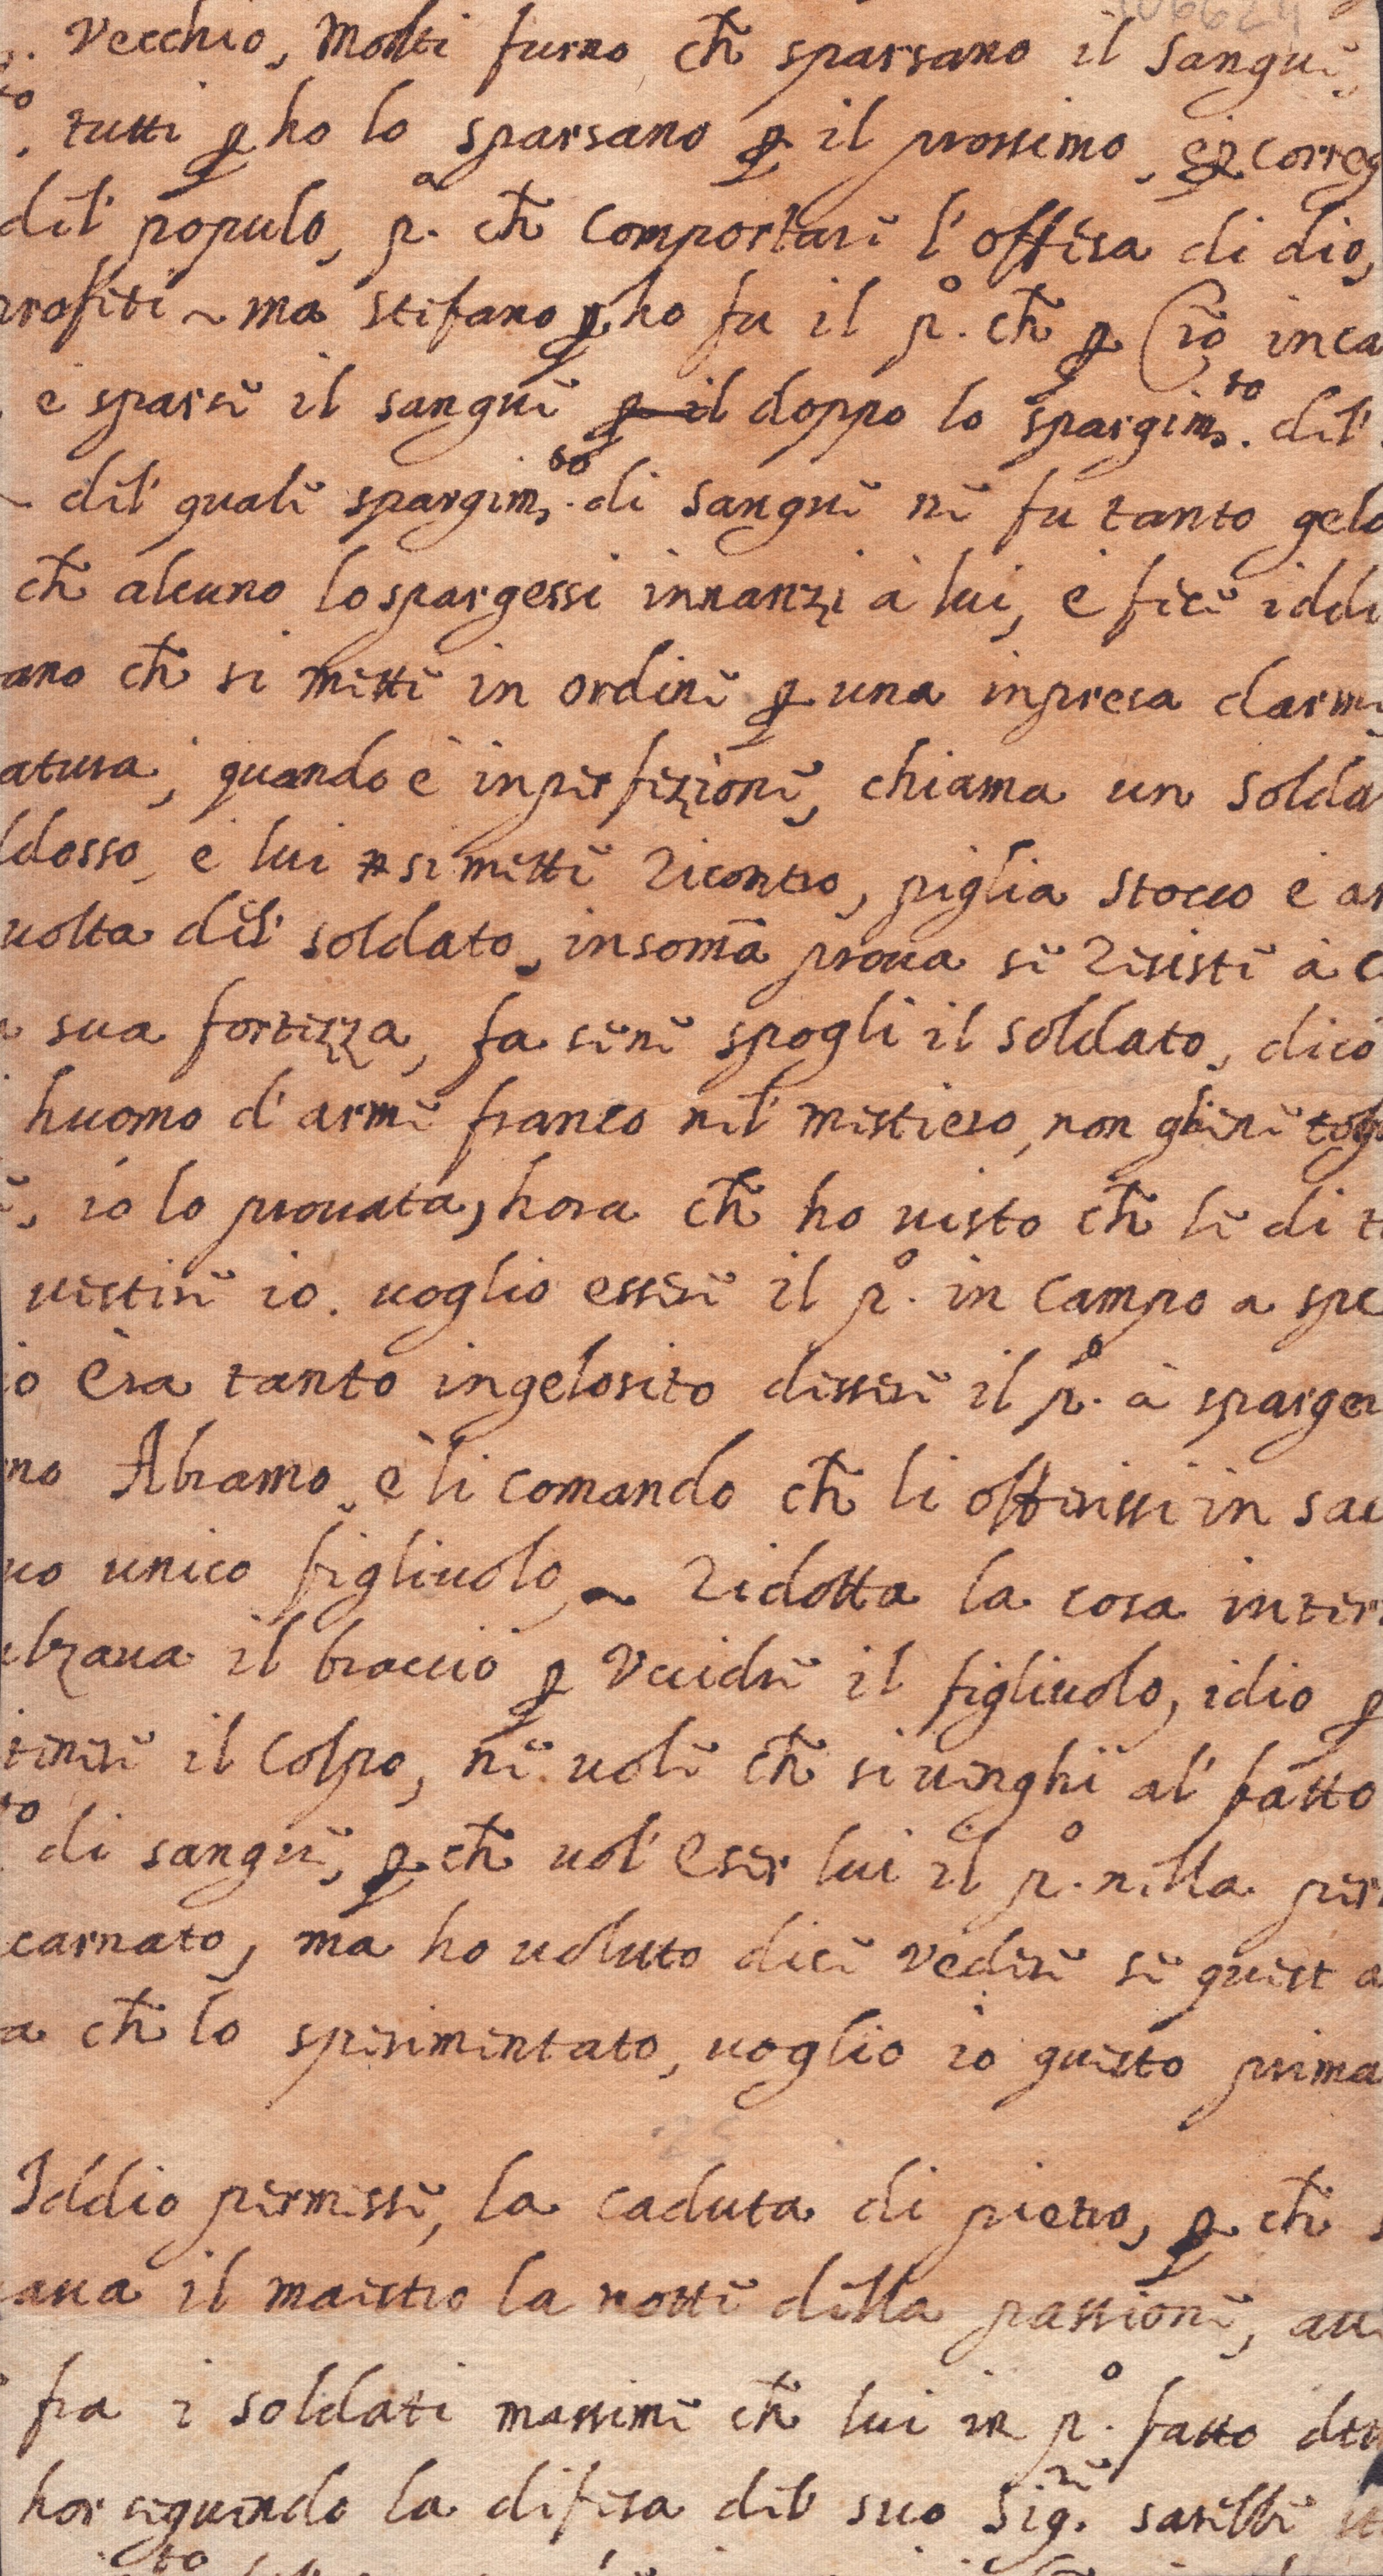 Vecchio, Molti furno ch̃ sparsano il sangue
tutti ꝑho lo sparsano ꝑ il prossimo, et correg
del' populo, pª. ch̃ comportare l'offesa di dio,
profeti ~ ma stefano ꝑho fu il p.º ch̃ ꝑ inca
e sparse il sangue doppo lo spargim.to del'
~ del' quale spargim.to di sangue ne fu tanto gelo
ch̃ alcuno lo spargessi innanzi à lui, e fece iddi
ano ch̃ si mette in ordine ꝑ una inpresa darme
atura, quando è inperfezione, chiama un solda
ldosso, e lui si mette ricontro, piglia stocco e ar
uolta del' soldato, insomã proua se resiste à c
sua fortezza, fa sene spogli il soldato, dico
huomo d'arme franco nel' mestiero, non gliene togl
io lo prouata, hora ch̃ ho uisto ch̃ le di t
uestire io. uoglio essere il p.º in campo a spe
io èra tanto ingelosito dessere il p.º à sparger
no Abramo, e li comando ch̃ li offerissi in sac
uo unico figliuolo, ~ ridotta la cosa inter
lzaua il braccio ꝑ Vccidre il figliuolo, idio ꝑ
tenere il colpo, ne uole ch̃ si uenghi al' fatto
to di sangue, ꝑch̃ uol' eser lui il p.º nella per
carnato, ma ho uoluto dice vedere se quest a
a ch̃ lo sperimentato, uoglio io questo prima
Iddio permesse, la caduta di pietro, ꝑch̃ s
aua il maestro la notte della passione, aue
fra i soldati massime ch̃ lui in p.º fatto
hor seguendo la difesa del suo Sig.re sarebbe